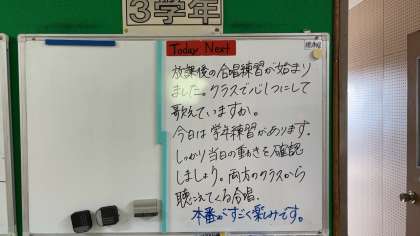 3学年
Today Next
放課後の合唱練習が始まり
ました。クラスで心1つにして
歌えていますか。
今日は学年練習があります。
しっかり当日の動きを確認
しましょう。両方のクラスから
聴こえてくる合唱。
本番がすごく楽しみです。